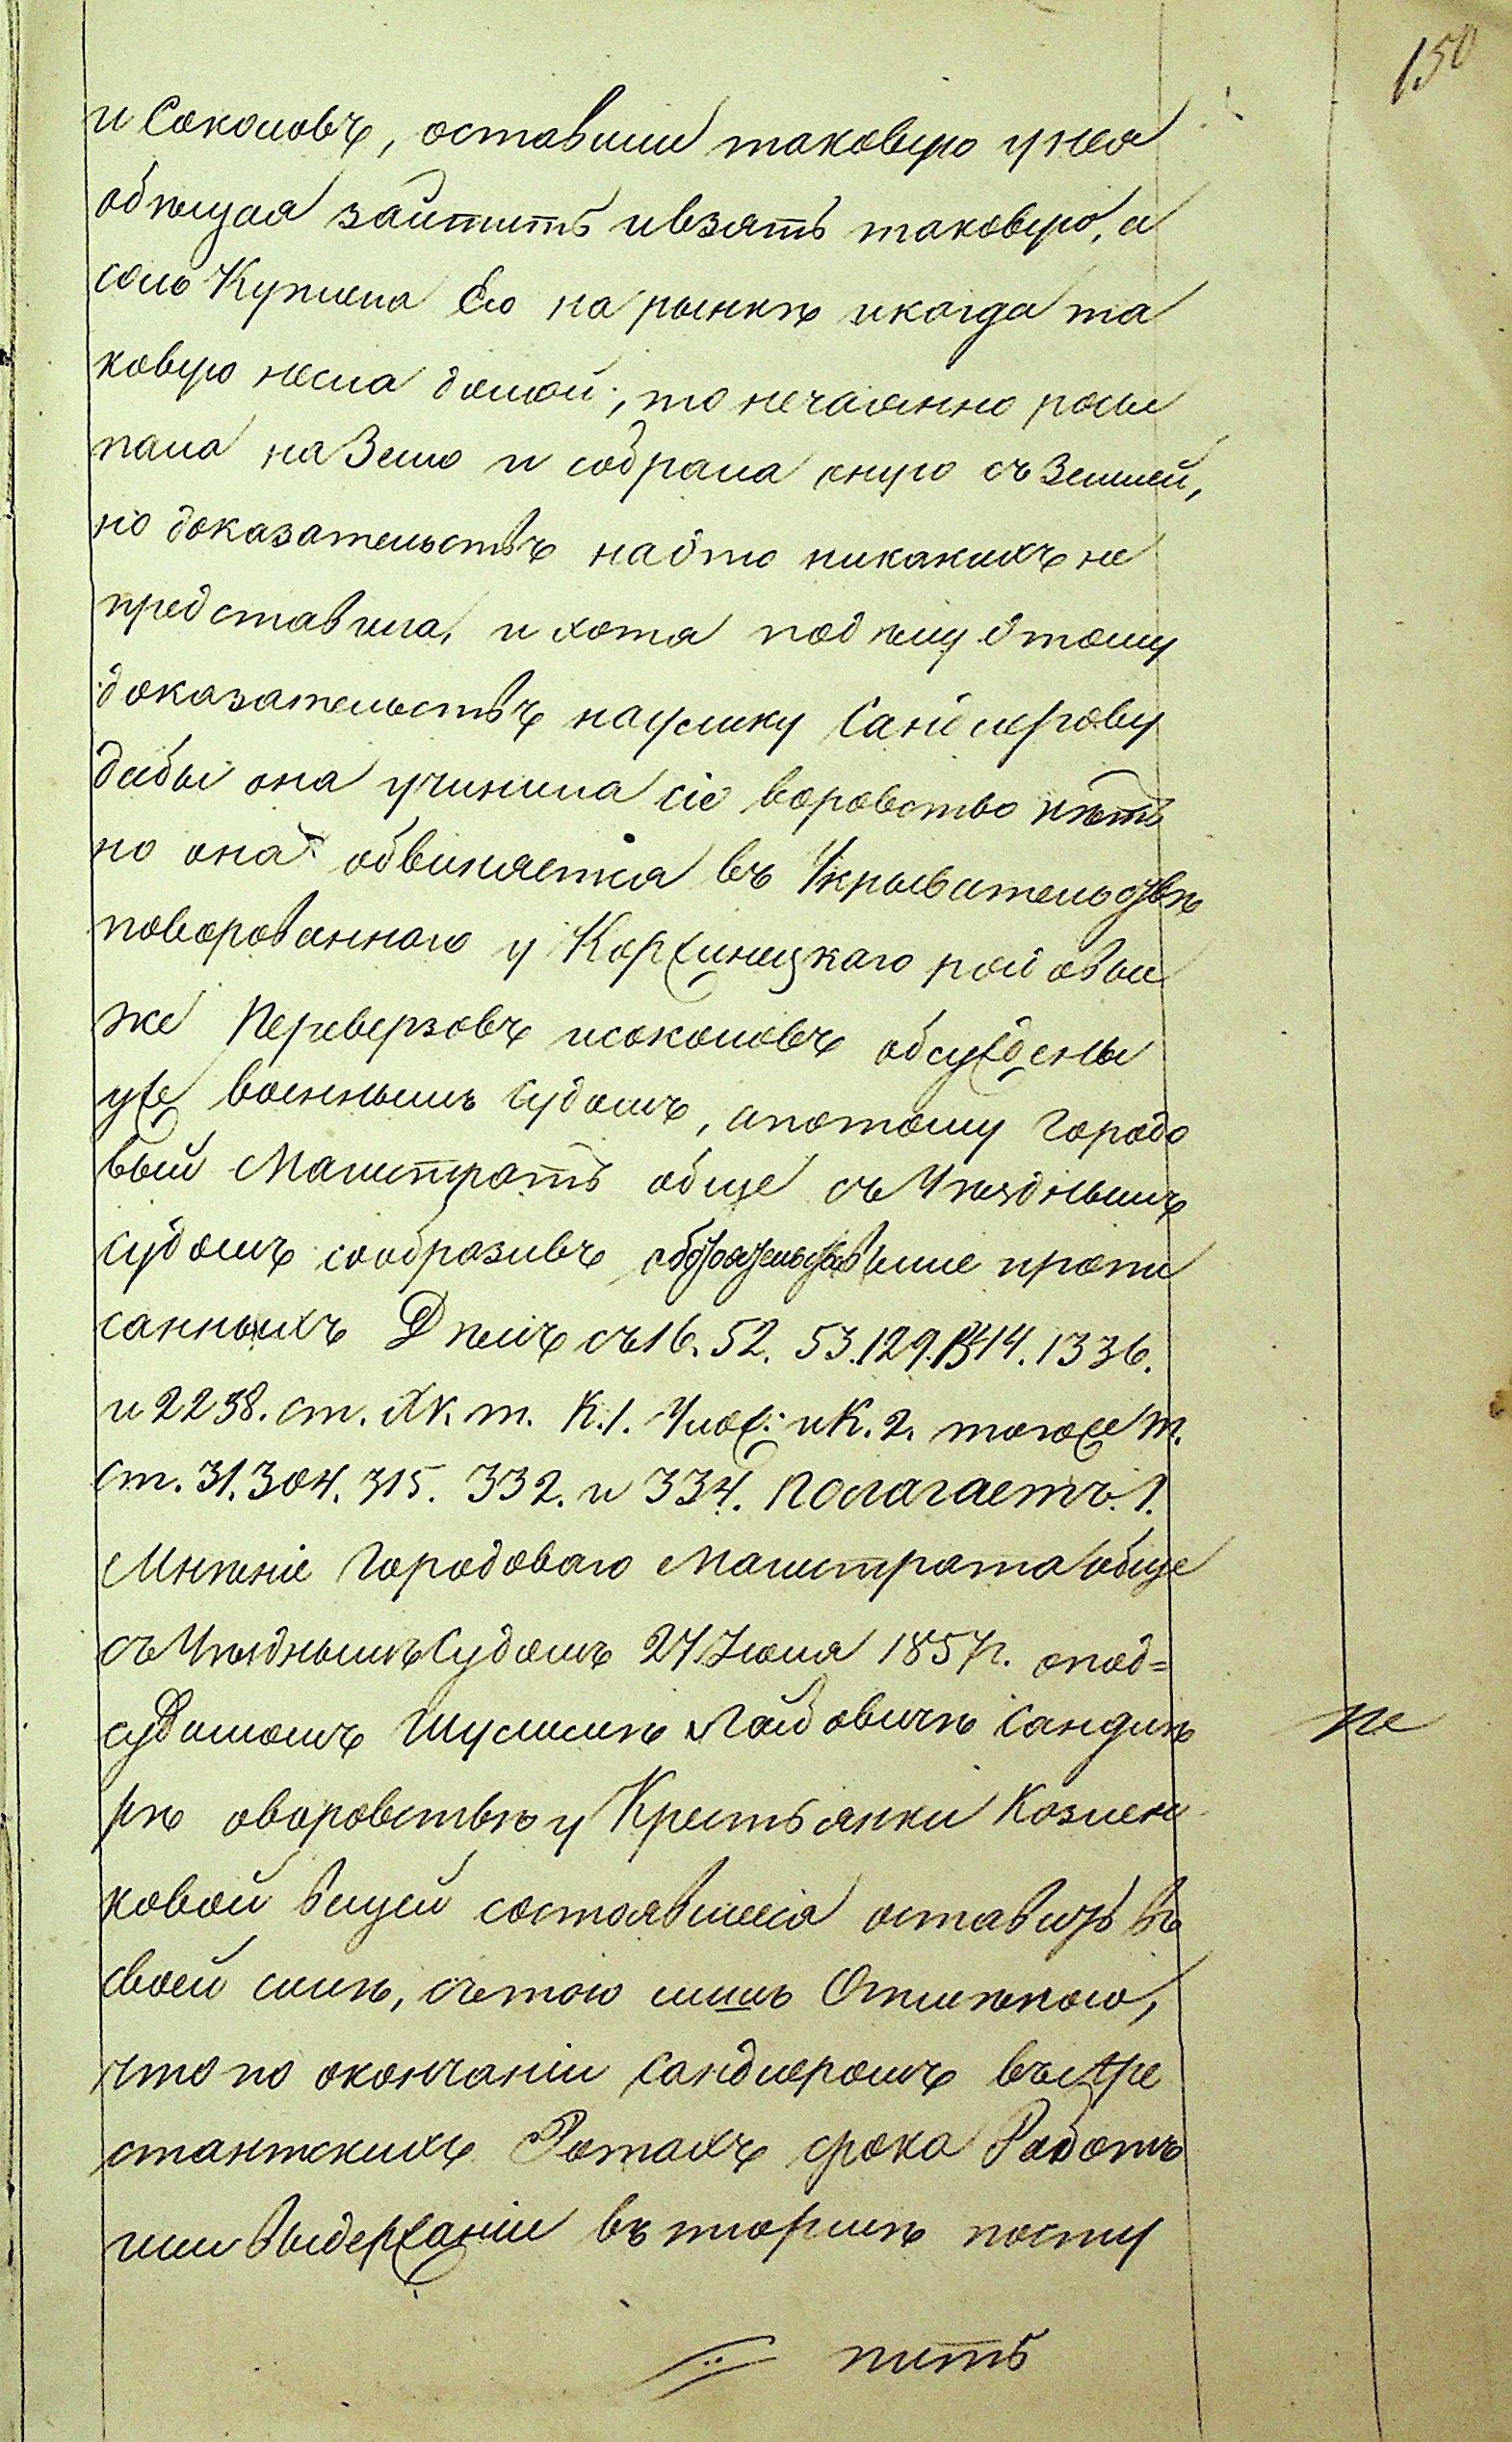 150
и Соколовъ, оставили таковую у нея
обѣщая зайтить и взять таковую, а
соль Куплена Ею на рынкѣ и когда та
ковую несла домой, то нечаянно розсы
пала на Землю и собрала оную съ Землей,
но доказательствъ на это никакихъ не
представила, и хотя подѣлу этому
доказательствъ наулику Сандлерову
дабы она учинила сіе воровство нѣтъ
но она обвиняется въ Укрывательствѣ
поворованнаго у Коржинецкаго
же Переверзовъ и соколовъ обсуждены
уже военнымъ Судомъ, а потому Городо
вый Магистратъ обще съ Уѣзднымъ
судомъ сообразивъ обстоятельства выше пропи
санныхъ Дѣлъ съ 16. 52. 53. 129. 1336.
и 2238. ст. XV. т. К. 1. Улож: и К. 2. тогоже т.
ст. 31. 304. 315. 332. и 334. Полагаетъ. 1.
Мнѣніе Городоваго Магистрата обще
съ Уѣзднымъ Судомъ 1857 г. опод=
судимомъ Шулимѣ Лайбовичѣ Сандлѣ
рѣ оворовствѣ у Крестьянки Козлен
ковой вещей состоявшееся оставить въ
своей силѣ, стою лишь Отмѣною,
что по окончаніи Сандлеромъ въ Аре
стантскихъ Ротахъ срока Работъ
или выдержаніи въ тюрьмѣ посту
пить